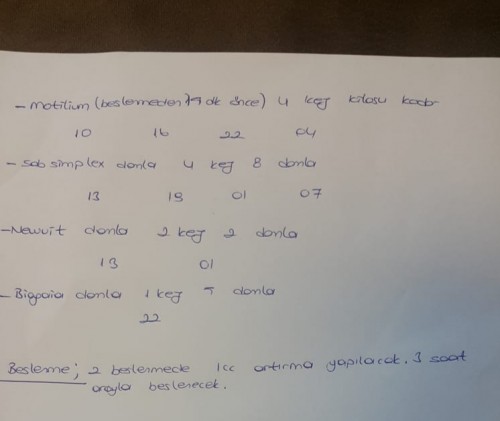 - Motilium (beslemeden 15 dk önce) 4 kez kilosu kadar
10 16 22 04
- Sab simplex damla 4 kez 8 damla
13 19 01 07
- Newvit damla 2 kez 2 damla
13 01
- Biogaia damla 1 kez 5 damla
22
Besleme; 2 beslenmede 1cc artırma yapılacak. 3 saat
arayla beslenecek.